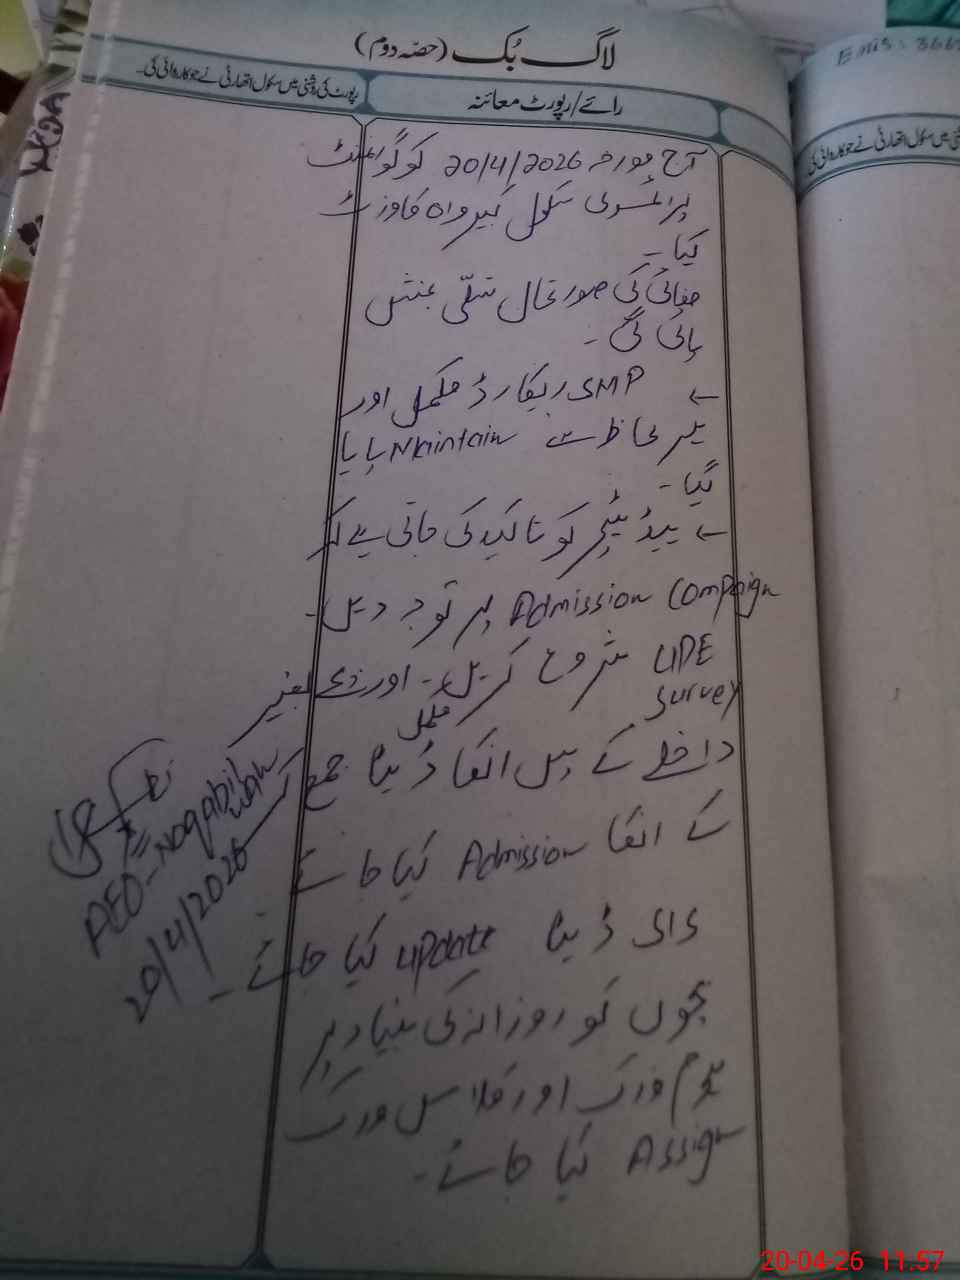 لاگ بُک (حصّہ دوم)
Emis: 366
رائے/رپورٹ معائنہ
رپورٹ کی روشنی میں سکول اتھارٹی نے جو کاروائی کی۔
آج مورخہ 20/4/2026 کو گورنمنٹ
پرائمری سکول کبیر واہ کا وزٹ
کیا۔
صفائی کی صورتحال تسلّی بخش
پائی گئی۔
← SMP ریکارڈ مکمل اور
ہر لحاظ سے Maintain پایا
گیا۔
← ہیڈ ٹیچر کو تاکید کی جاتی ہے کہ
Admission Compaign پر توجہ دیں۔
UPE شروع کریں۔ اور
Survey مکمل
داخلے کے ہیں انکا ڈیٹا جمع کر
کے انکا Admission کیا جائے
ڈیٹا update کیا جائے۔
بچوں کو روزانہ کی بنیاد پر
ہوم ورک اور کلاس ورک
Assign کیا جائے۔
AEO-Noqabilwah
20/4/2026
20-04-26 11:57